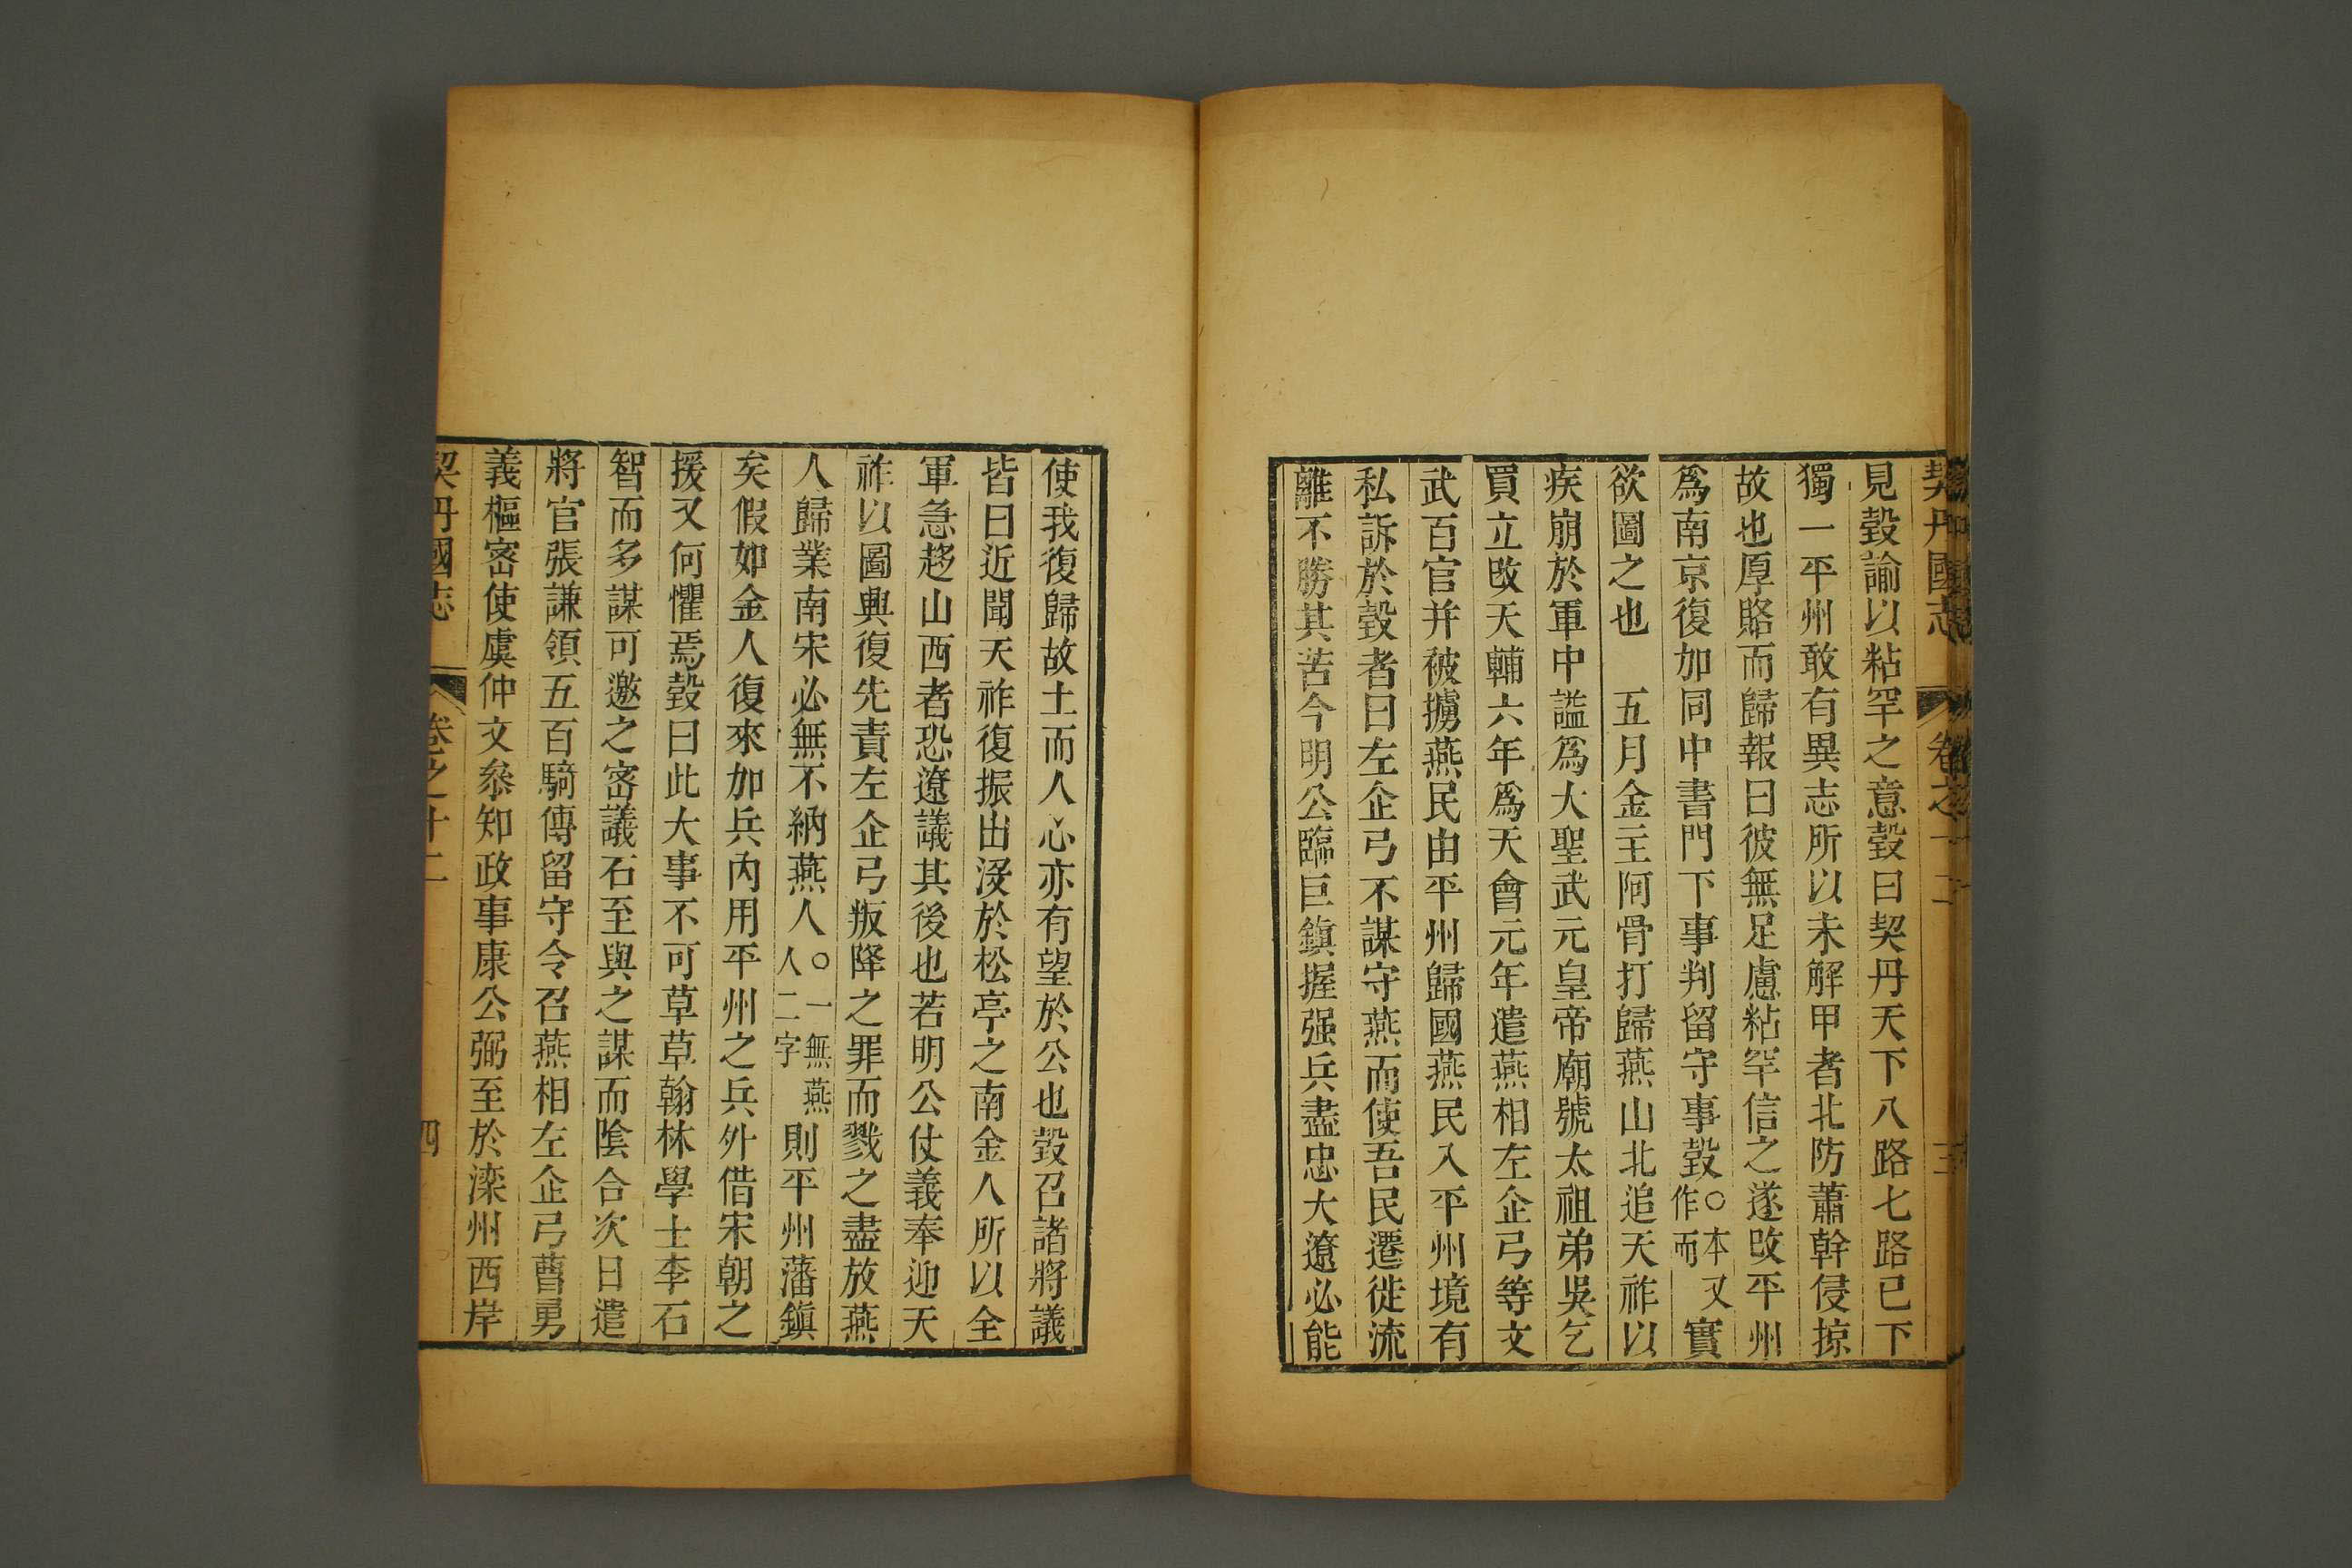 契丹國志 卷之十二 三
見瑴諭以粘罕之意瑴曰契丹天下八路七路已下
獨一平州敢有異志所以未解甲者北防蕭幹侵掠
故也厚賂而歸報曰彼無足慮粘罕信之遂改平州
爲南京復加同中書門下事判留守事瑴〇本又作而實
欲圖之也 五月金主阿骨打歸燕山北追天祚以
疾崩於軍中謚爲大聖武元皇帝廟號太祖弟吳乞
買立改天輔六年爲天會元年遣燕相左企弓等文
武百官并被擄燕民由平州歸國燕民入平州境有
私訴於瑴者曰左企弓不謀守燕而使吾民遷徙流
離不勝其苦今明公臨巨鎮握强兵盡忠大遼必能
使我復歸故土而人心亦有望於公也瑴召諸將議
皆曰近聞天祚復振出沒於松亭之南金人所以全
軍急趍山西者恐遼議其後也若明公仗義奉迎天
祚以圖興復先責左企弓叛降之罪而戮之盡放燕
人歸業南宋必無不納燕人〇一無燕人二字則平州藩鎮
矣假如金人復來加兵內用平州之兵外借宋朝之
援又何懼焉瑴曰此大事不可草草翰林學士李石
智而多謀可邀之密議石至與之謀而陰合次日遣
將官張謙領五百騎傳留守令召燕相左企弓曹勇
義樞密使虞仲文叅知政事康公弼至於灤州西岸
契丹國志 卷之十二 四